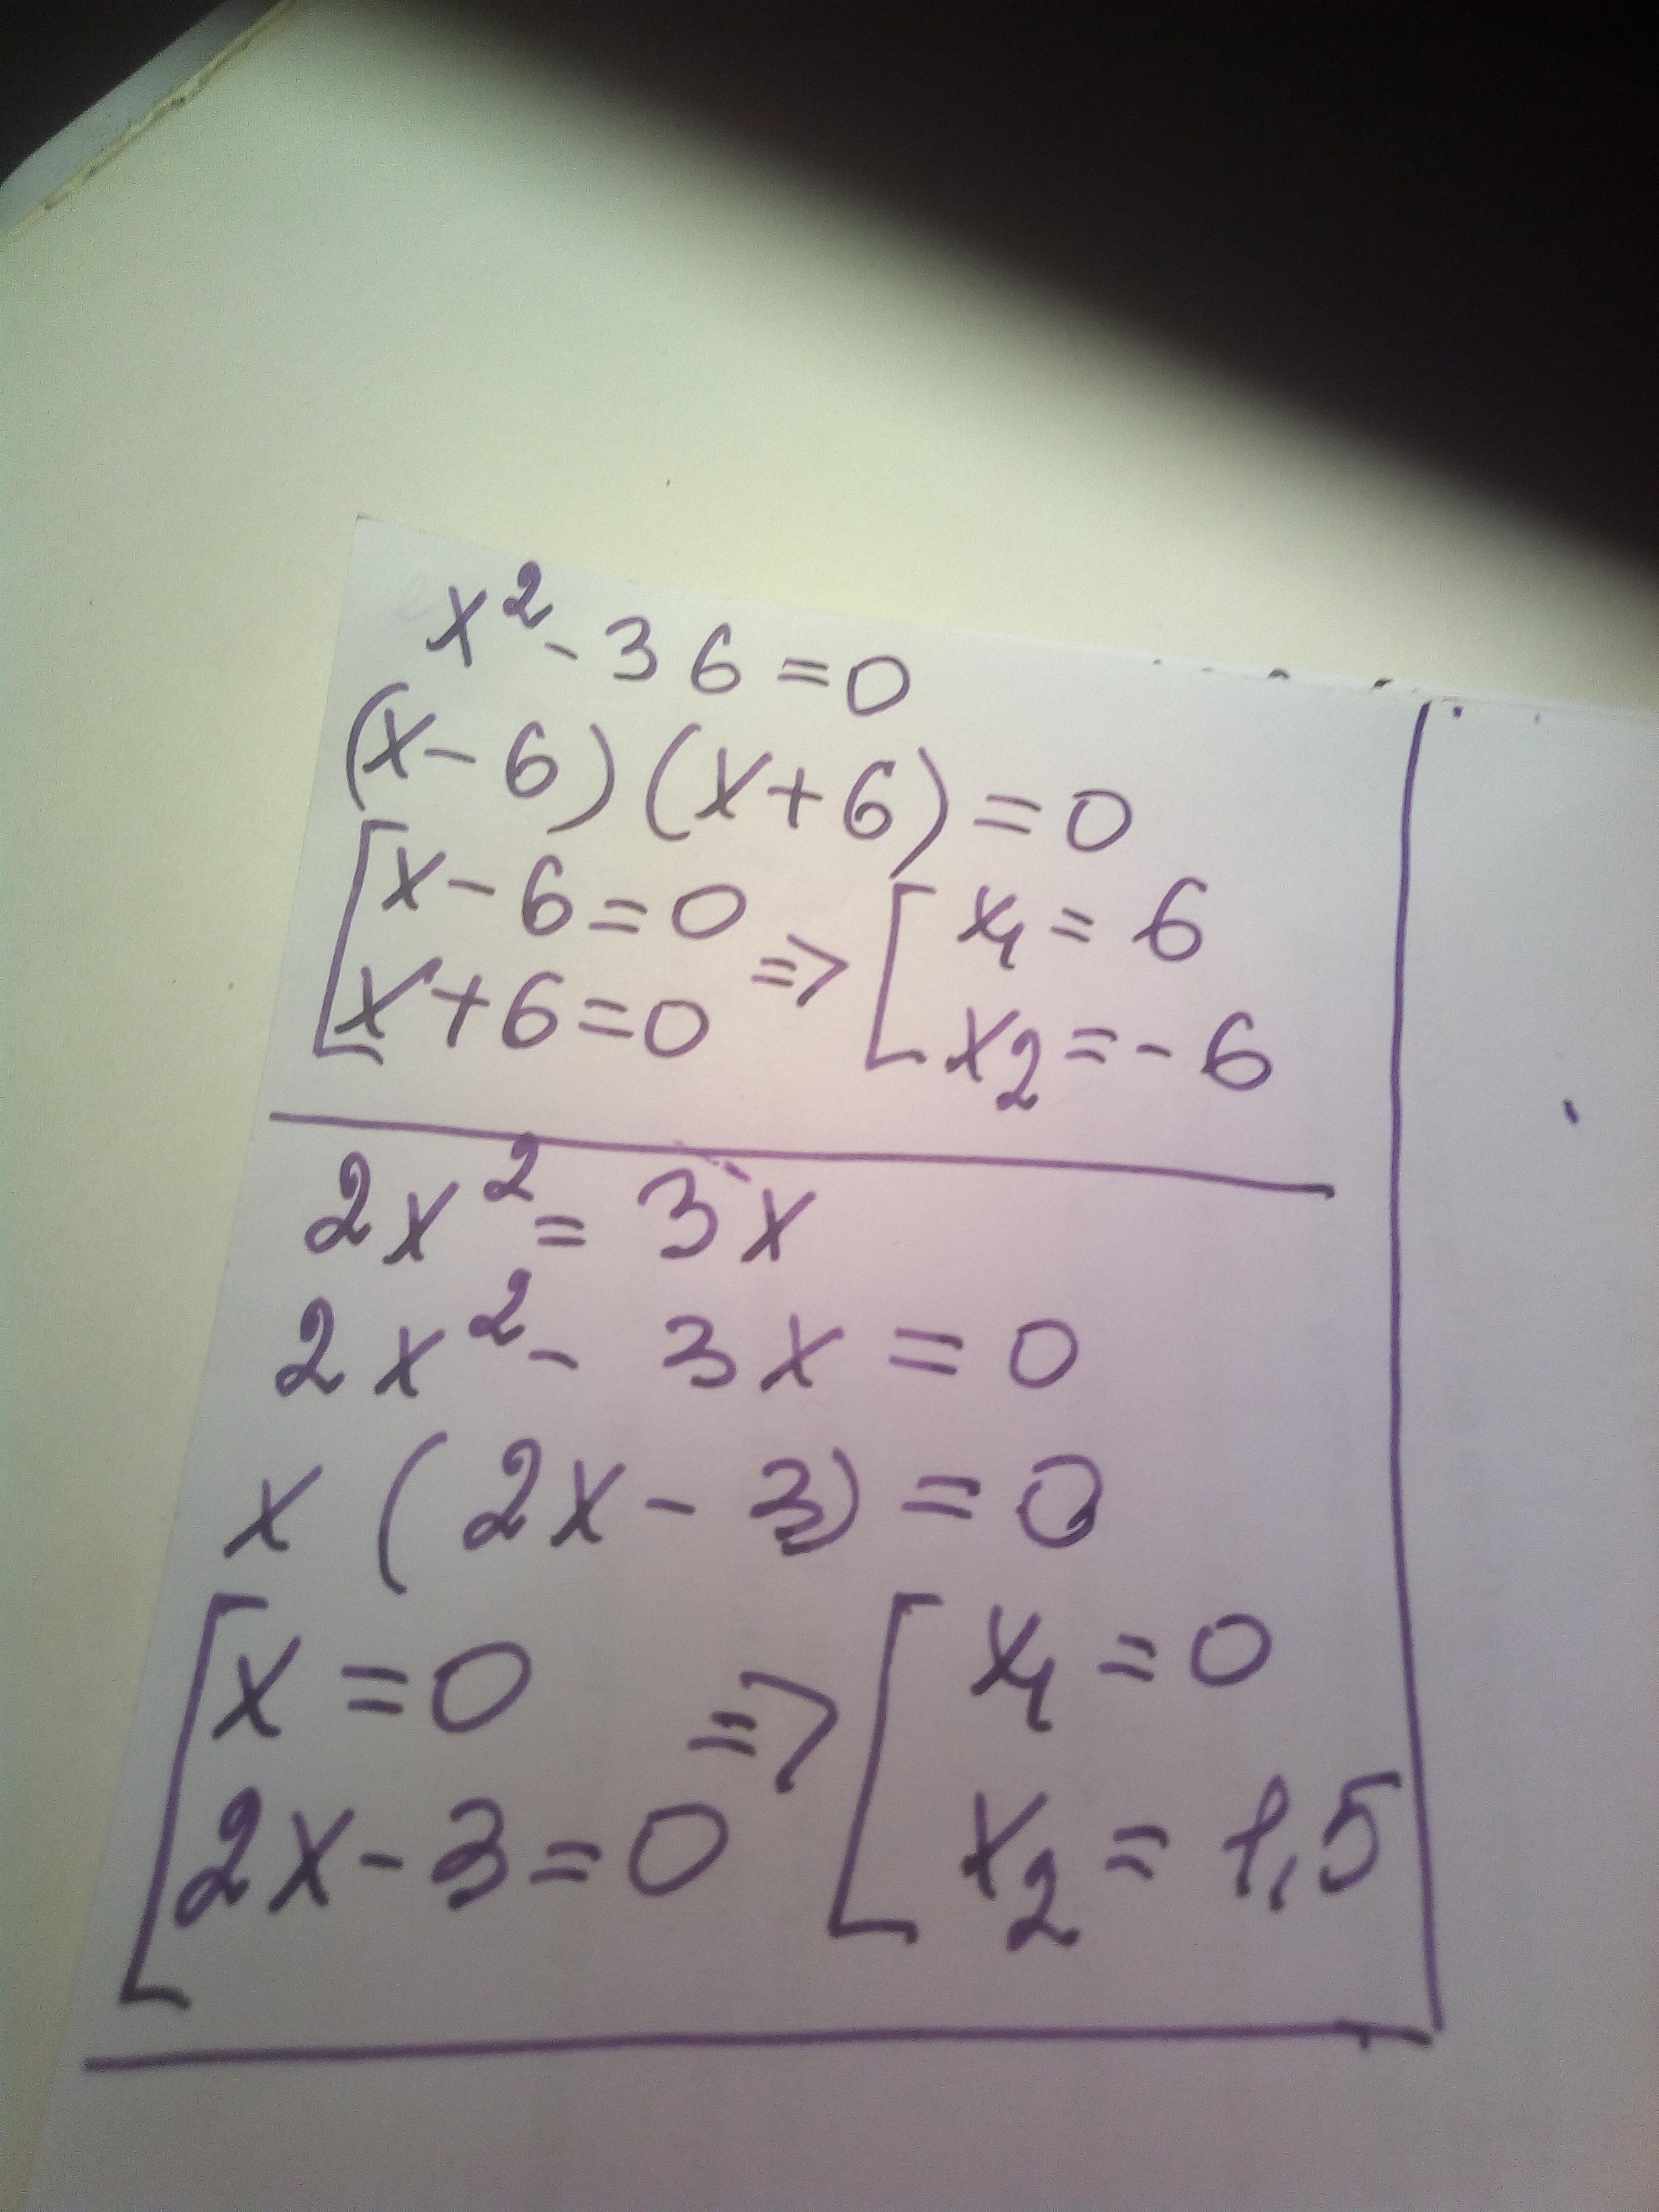 x² - 36 = 0
(x - 6) (x + 6) = 0
[ x - 6 = 0 => [ x₁ = 6
x + 6 = 0 x₂ = - 6
2x² = 3x
2x² - 3x = 0
x (2x - 3) = 0
[ x = 0 => [ x₁ = 0
2x - 3 = 0 x₂ = 1,5